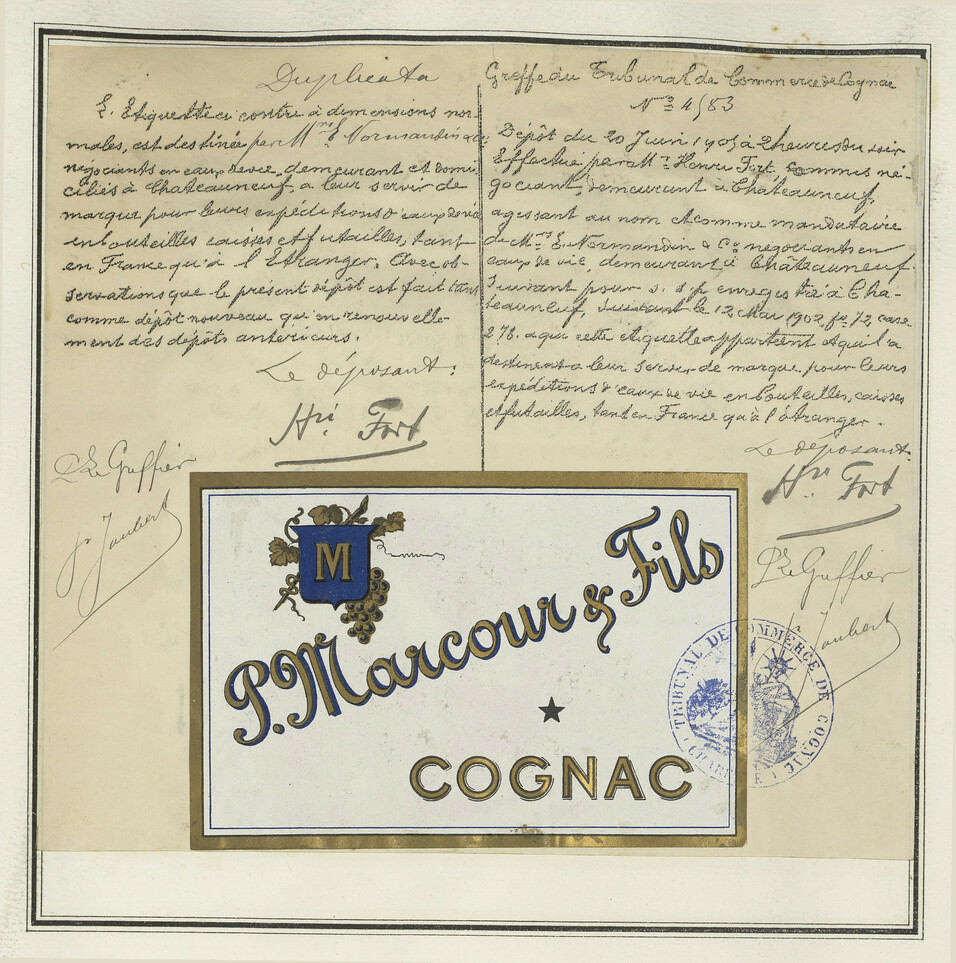 Duplicata
L'Etiquette ci contre à dimensions nor-
males, est destinée par Mrs E. Normandin & Co
négociants en eaux de vie, demeurant et domi-
ciliés à Chateauneuf, a leur servir de
marque pour leurs expéditions d'eaux de vie
en bouteilles caisses et futailles, tant
en France qu'à l'Etranger. Avec ob-
servations que le présent dépôt est fait tant
comme dépôt nouveau qu'en renouvelle-
ment des dépôts antérieurs.
Le déposant.
Hri Fort
Le Greffier
Joubert
Greffe du Tribunal de Commerce de Cognac
No 34/53
Dépôt du 20 Juin 1905 à 2 heures du soir
Effectué par Mr Henri Fort, commis né-
gociant, demeurant à Châteauneuf,
agissant au nom et comme mandataire
de Mrs E. Normandin & Co négociants en
eaux de vie, demeurant à Châteauneuf.
Suivant pour s. s/p enregistré à Cha-
teauneuf, le 12 Mai 1902, fo 72, case
278. a qui cette etiquette appartient et qui l'a
destinent a leur servir de marque pour leurs
expéditions d'eaux de vie en bouteilles, caisses
et futailles, tant en France qu'à l'étranger.
Le déposant
Hri Fort
Le Greffier
Joubert
M
P. Marcour & Fils
COGNAC
TRIBUNAL DE COMMERCE DE COGNAC